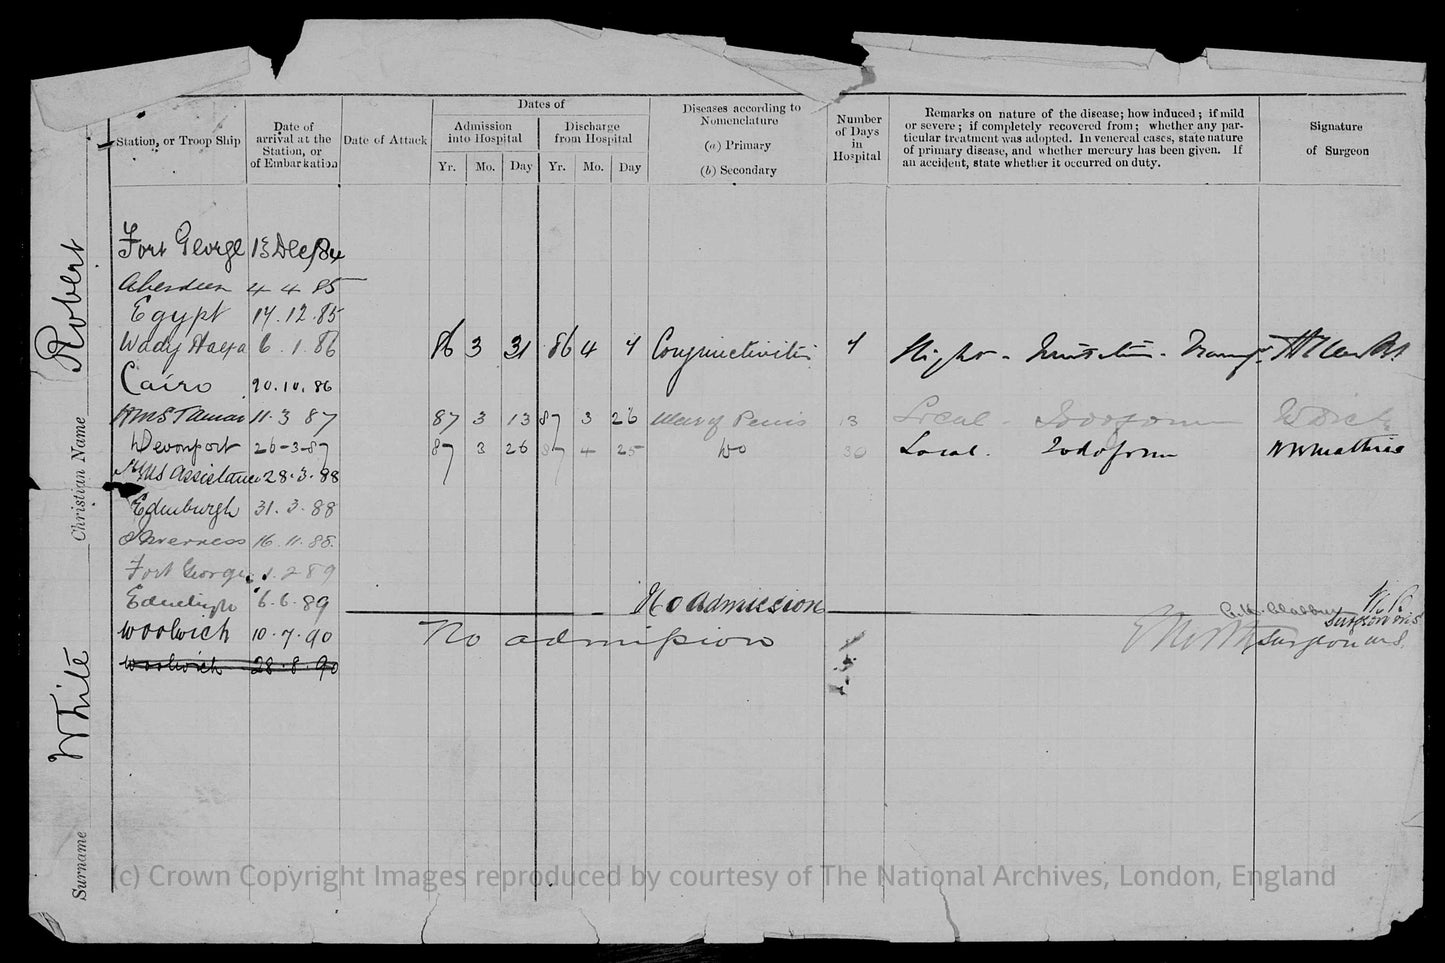 Dates of
Station, or Troop Ship
Date of
arrival at the
Station, or
of Embarkation
Date of Attack
Admission
into Hospital
Discharge
from Hospital
Yr. Mo. Day Yr. Mo. Day
Diseases according to
Nomenclature
(a) Primary
(b) Secondary
Number
of Days
in
Hospital
Remarks on nature of the disease; how induced; if mild
or severe; if completely recovered from; whether any par-
ticular treatment was adopted. In venereal cases, state nature
of primary disease, and whether mercury has been given. If
an accident, state whether it occurred on duty.
Signature
of Surgeon
Fort George 13 Dec/84
Aberdeen 4 4 85
Egypt 17.12.85
Wady Halfa 6.1.86 86 3 31 86 4 4 Conjunctivitis 4
Cairo 20.10.86
HMS Tamar 11.3 87 87 3 13 87 3 26 Ulcer of Penis 13 Local Iodoform
Devonport 26-3-87 87 3 26 87 4 25 Do 30 Local. Iodoform
HMS Assistance 28.3.88
Edinburgh 31.3.88
Inverness 16.11.88.
Fort George 1.2 89
Edinburgh 6.6.89 No admission
Surgeon
Woolwich 10.7.90 No admission Surgeon MS.
Woolwich 28.8.90
Surname White Christian Name Robert
(c) Crown Copyright Images reproduced by courtesy of The National Archives, London, England